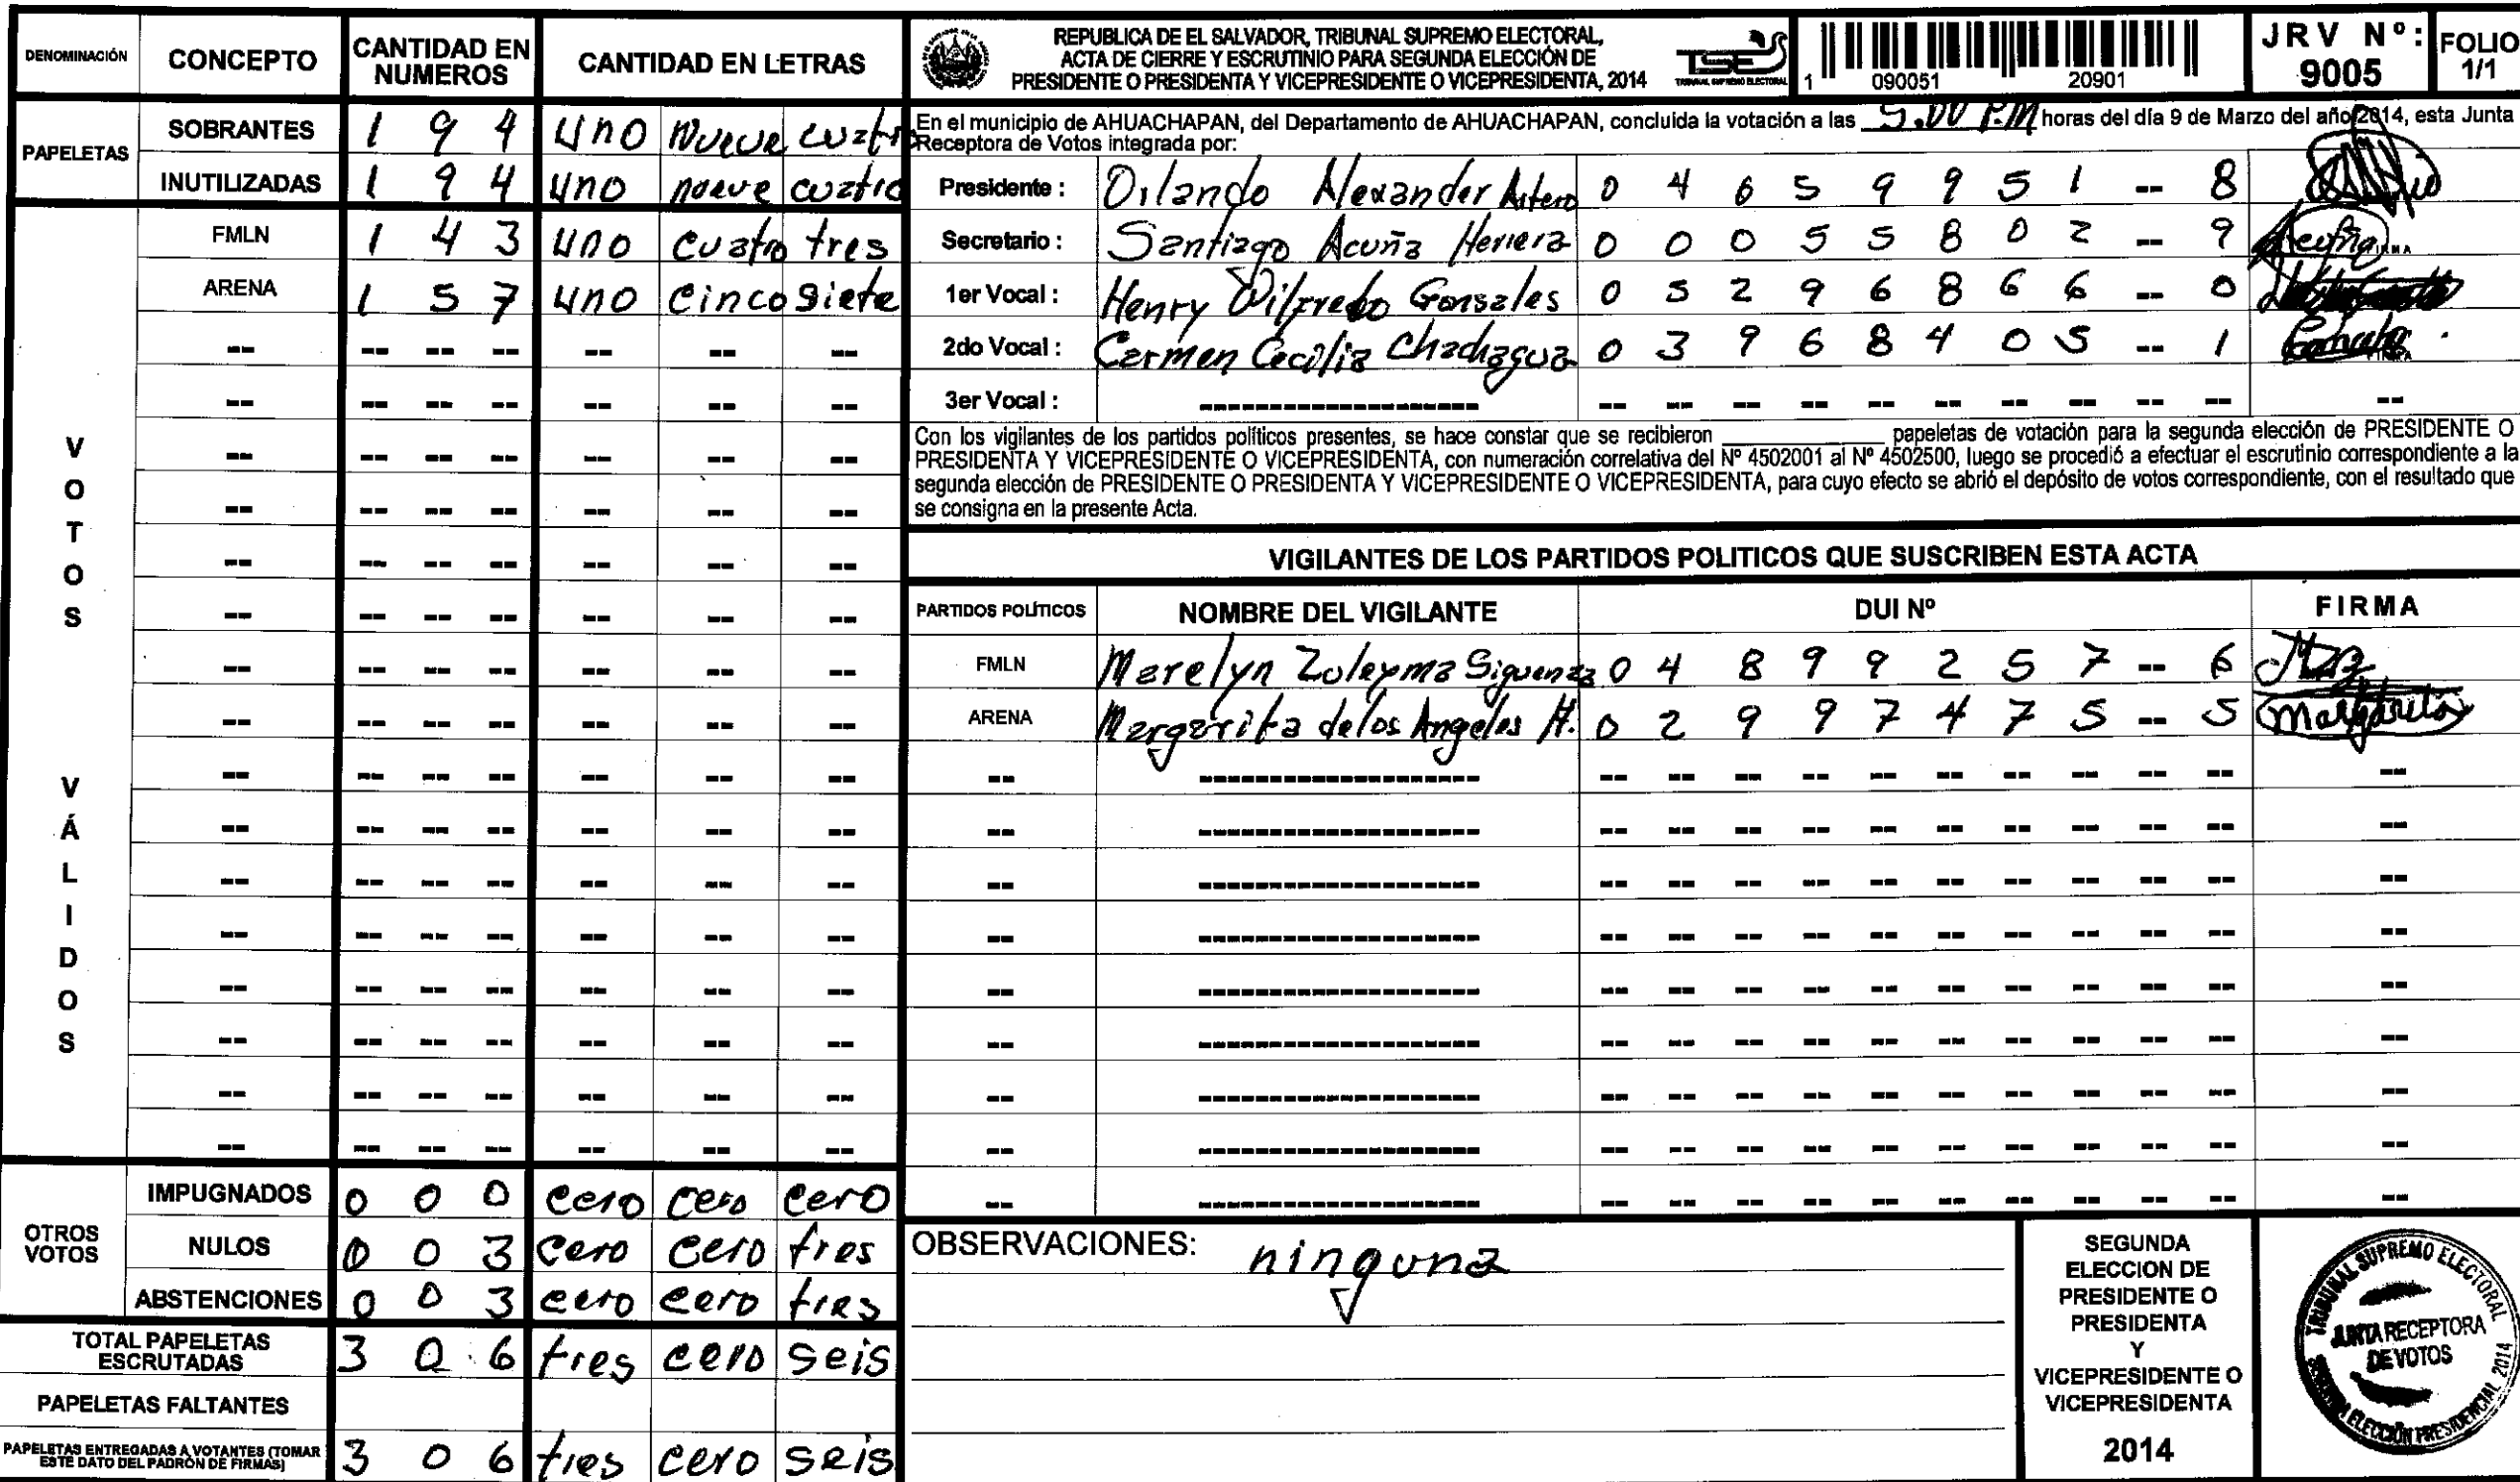 DENOMINACIÓN CONCEPTO CANTIDAD EN NUMEROS CANTIDAD EN LETRAS
PAPELETAS
SOBRANTES 1 9 4 uno nueve cuatro
INUTILIZADAS 1 9 4 uno nueve cuatro
VOTOS VÁLIDOS
FMLN 1 4 3 uno cuatro tres
ARENA 1 5 7 uno cinco siete
OTROS VOTOS
IMPUGNADOS 0 0 0 cero cero cero
NULOS 0 0 3 cero cero tres
ABSTENCIONES 0 0 3 cero cero tres
TOTAL PAPELETAS ESCRUTADAS 3 0 6 tres cero seis
PAPELETAS FALTANTES
PAPELETAS ENTREGADAS A VOTANTES (TOMAR ESTE DATO DEL PADRÓN DE FIRMAS) 3 0 6 tres cero seis
REPUBLICA DE EL SALVADOR, TRIBUNAL SUPREMO ELECTORAL,
ACTA DE CIERRE Y ESCRUTINIO PARA SEGUNDA ELECCIÓN DE
PRESIDENTE O PRESIDENTA Y VICEPRESIDENTE O VICEPRESIDENTA, 2014
TSE
TRIBUNAL SUPREMO ELECTORAL
1 090051 20901
JRV Nº: 9005
FOLIO 1/1
En el municipio de AHUACHAPAN, del Departamento de AHUACHAPAN, concluida la votación a las 5.00 P.M horas del día 9 de Marzo del año 2014, esta Junta
Receptora de Votos integrada por:
Presidente : Orlando Alexander Artero 0 4 6 5 9 9 5 1 -- 8
Secretario : Santiago Acuña Herrera 0 0 0 5 5 8 0 2 -- 9
1er Vocal : Henry Wilfredo Gonsales 0 5 2 9 6 8 6 6 -- 0
2do Vocal : Carmen Cecilia Chachagua 0 3 9 6 8 4 0 5 -- 1
3er Vocal :
Con los vigilantes de los partidos políticos presentes, se hace constar que se recibieron ____ papeletas de votación para la segunda elección de PRESIDENTE O
PRESIDENTA Y VICEPRESIDENTE O VICEPRESIDENTA, con numeración correlativa del Nº 4502001 al Nº 4502500, luego se procedió a efectuar el escrutinio correspondiente a la
segunda elección de PRESIDENTE O PRESIDENTA Y VICEPRESIDENTE O VICEPRESIDENTA, para cuyo efecto se abrió el depósito de votos correspondiente, con el resultado que
se consigna en la presente Acta.
VIGILANTES DE LOS PARTIDOS POLITICOS QUE SUSCRIBEN ESTA ACTA
PARTIDOS POLÍTICOS NOMBRE DEL VIGILANTE DUI Nº FIRMA
FMLN Marelyn Zuleyma Siguenza 0 4 8 9 9 2 5 7 -- 6
ARENA Margarita de los Angeles H. 0 2 9 9 7 4 7 5 -- 5 Margarita
OBSERVACIONES: ninguna
SEGUNDA
ELECCION DE
PRESIDENTE O
PRESIDENTA
Y
VICEPRESIDENTE O
VICEPRESIDENTA
2014
TRIBUNAL SUPREMO ELECTORAL
JUNTA RECEPTORA
DE VOTOS
SEGUNDA ELECCIÓN PRESIDENCIAL 2014